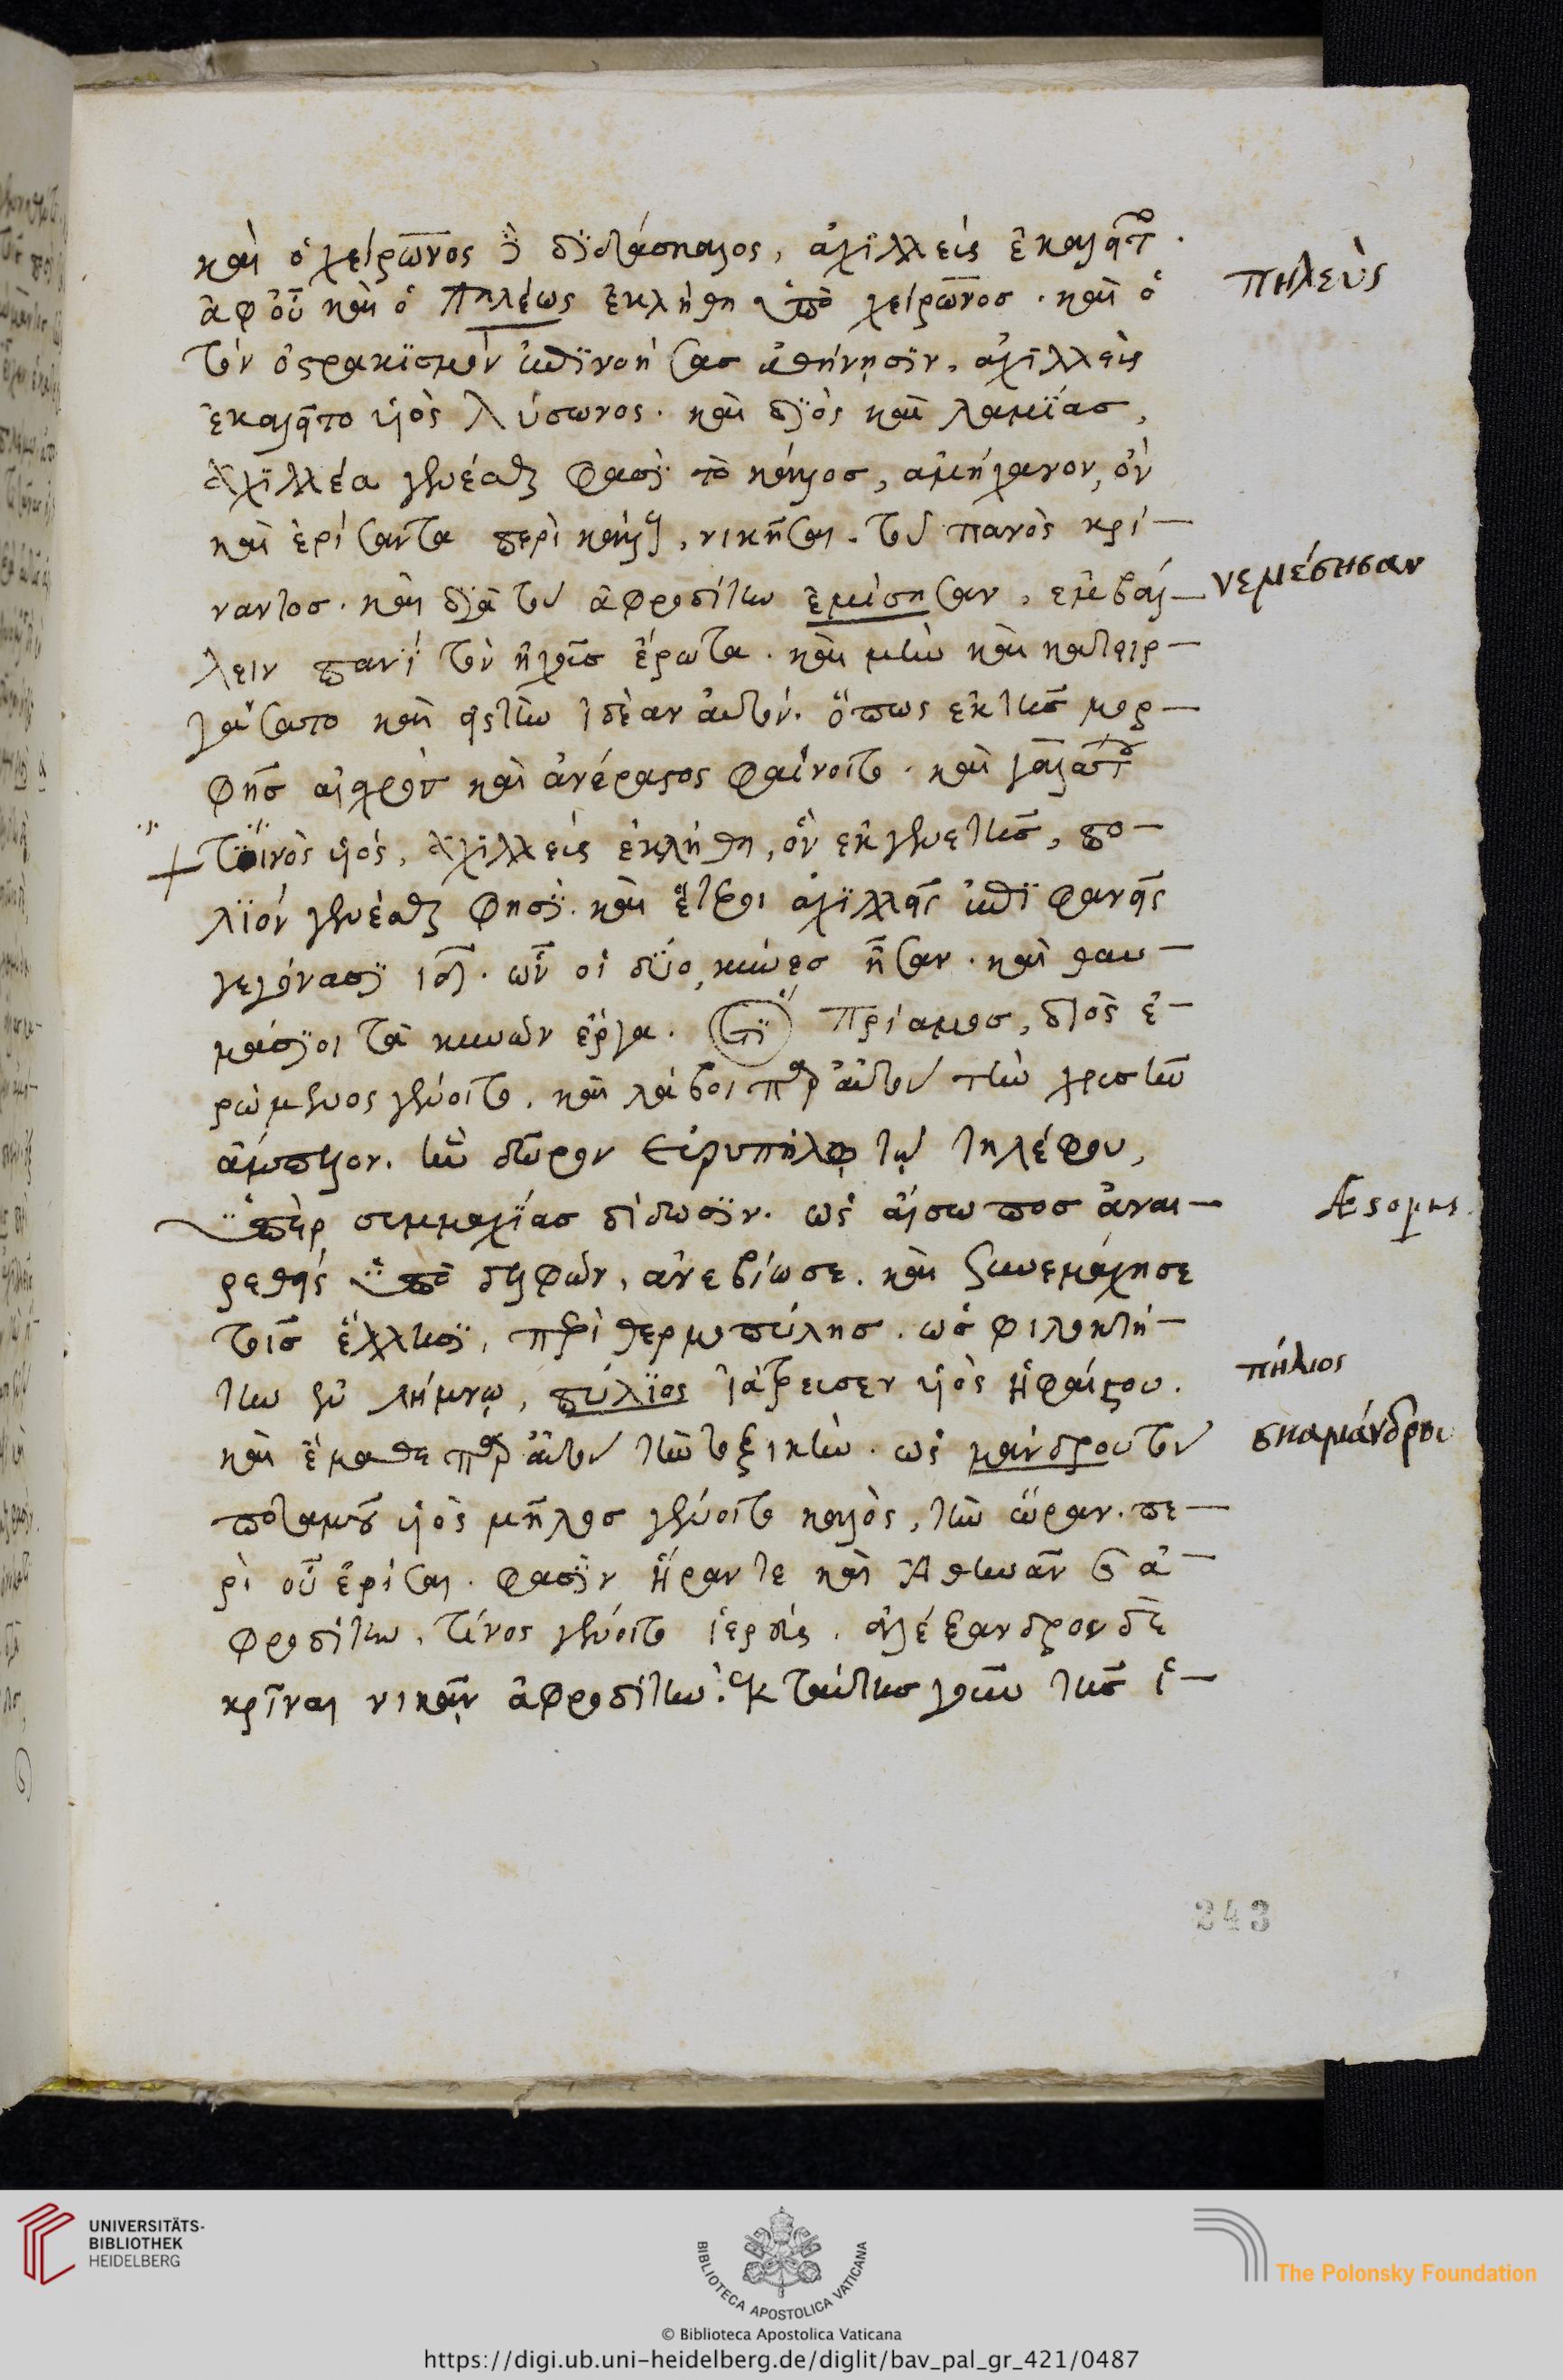 καὶ ὁ χείρωνος ὁ διδάσκαλος, ἀχιλλεὺς ἐκαλεῖτο.
ἀφ' οὗ καὶ ὁ Πηλέως ἐκλήθη ὑπὸ χείρωνος. καὶ ὁ
πηλεὺς
τὸν ὀστρακισμὸν ἐπινοήσας ἀθήνησιν, ἀχιλλεὺς
ἐκαλεῖτο υἱὸς Λύσωνος. καὶ διὸς καὶ λαμίας,
Ἀχιλλέα γενέσθαι φασὶ τὸ κάλλος, ἀμήχανον, ὃν
καὶ ἐρίσαντα περὶ κάλλους, νικῆσαι. τοῦ πανὸς κρί-
ναντος. καὶ διὰ τοῦ ἀφροδίτην ἐμίσησαν, ἐμβάλ-
νεμέσησαν
λειν πανὶ τὸν ἠχοῦς ἔρωτα. καὶ μὴν καὶ κατειρ-
γάσατο καὶ εἰς τὴν ἰδέαν αὐτὸν. ὅπως ἐκ τῆς μορ-
φῆς αἰσχρὸς καὶ ἀνέραστος φαίνοιτο. καὶ γαλάτου
τϊνὸς υἱὸς, Ἀχιλλεὺς ἐκλήθη, ὃν ἐκ γενετῆς, πο-
λιὸν γενέσθαι φησὶ. καὶ ἕτεροι ἀχιλλεῖς ἐπιφανεῖς
γεγόνασι ιδʹ. ὧν οἱ δύο, κύνες ἦσαν. καὶ θαυ-
μάσιοι τὰ κυνῶν ἔργα. ὅτι Πρίαμος, διὸς ἐ-
ρώμενος γένοιτο, καὶ λάβοι παρ' αὐτοῦ τὴν χρυσῆν
ἄμπελον. ἣν δῶρον Εὐρυπήλῳ τῷ τηλέφου,
ὑπὲρ συμμαχίας δίδωσιν. ὡς αἴσωπος ἀναι-
Æsopus.
ρεθεὶς ὑπὸ δελφῶν, ἀνεβίωσε. καὶ συνεμάχησε
τοῖς ἕλλησι, περὶ θερμοπύλης. ὡς φιλοκτή-
την ἐν λήμνῳ, πύλιος ἰάτρευσεν υἱὸς ἡφαίστου.
πήλιος
καὶ ἔμαθε παρ' αὐτοῦ τὴν τοξικὴν. ὡς μάνδρου τοῦ
σκαμάνδρου
ποταμοῦ υἱὸς μῆλος γένοιτο καλὸς, τὴν ὥραν. πε-
ρὶ οὗ ἐρίσαι. φασὶν Ἥραν τε καὶ Ἀθηνᾶν καὶ ἀ-
φροδίτην, τίνος γένοιτο ἱερεὺς. ἀλέξανδρον δὲ
κρῖναι νικᾷν ἀφροδίτην. ἐκ ταύτης γοῦν τῆς ἱ-
243
UNIVERSITÄTS-
BIBLIOTHEK
HEIDELBERG
BIBLIOTECA APOSTOLICA VATICANA
The Polonsky Foundation
© Biblioteca Apostolica Vaticana
https://digi.ub.uni-heidelberg.de/diglit/bav_pal_gr_421/0487